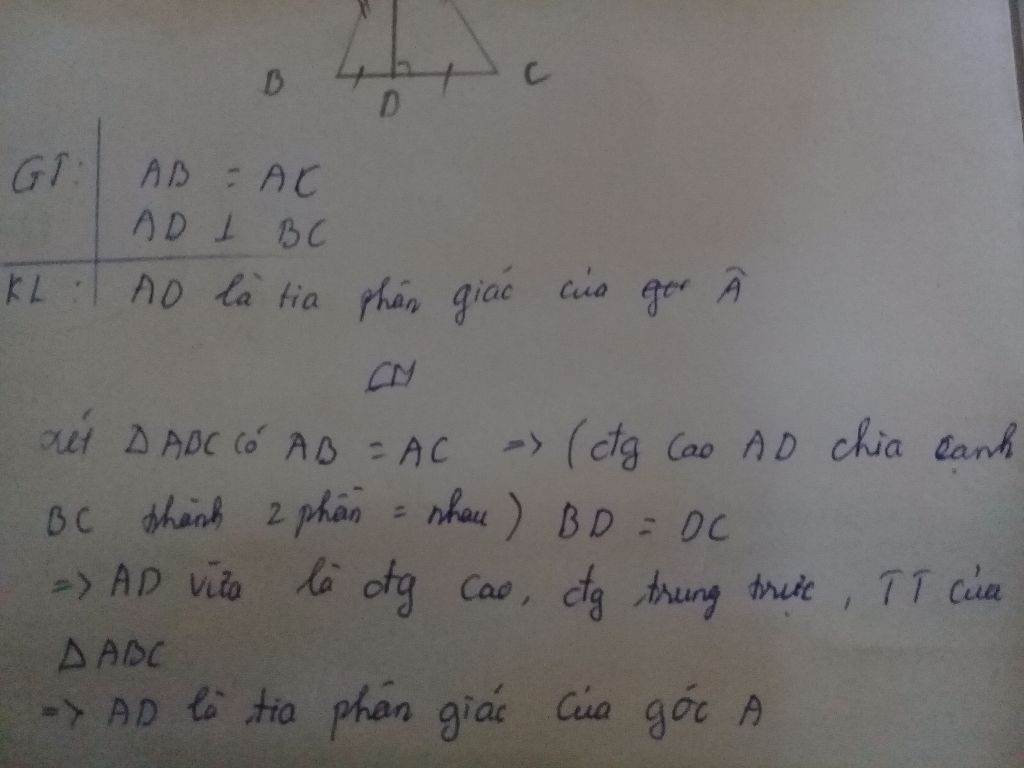 B
C
D
GT: AB = AC
AD ⊥ BC
KL: AD là tia phân giác của góc Â
CM
xét ΔABC có AB = AC => (đg cao AD chia cạnh
BC thành 2 phần = nhau) BD = DC
=> AD vừa là đg cao, đg trung trực, TT của
ΔABC
=> AD là tia phân giác của góc A